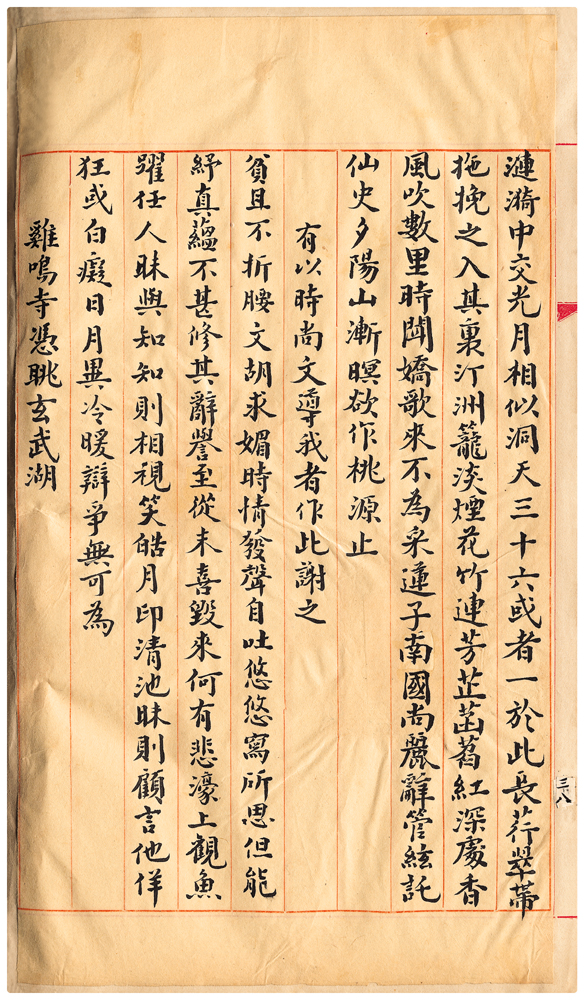 漣漪中交光月相似洞天三十六或者一於此長荇翠帶
拖挽之入其裏汀洲籠淡煙花竹連芳芷菡萏紅深處香
風吹數里時聞嬌歌來不為采蓮子南國尚麗辭管絃託
仙史夕陽山漸暝欲作桃源止
有以時尚文導我者作此謝之
貧且不折腰文胡求媚時情發聲自吐悠悠寫所思但能
紓真蘊不甚修其辭譽至從未喜毀來何有悲濠上觀魚
躍任人昧與知知則相視笑皓月印清池昧則顧言他佯
狂或白癡日月異冷暖辯爭無可為
雞鳴寺憑眺玄武湖
三八